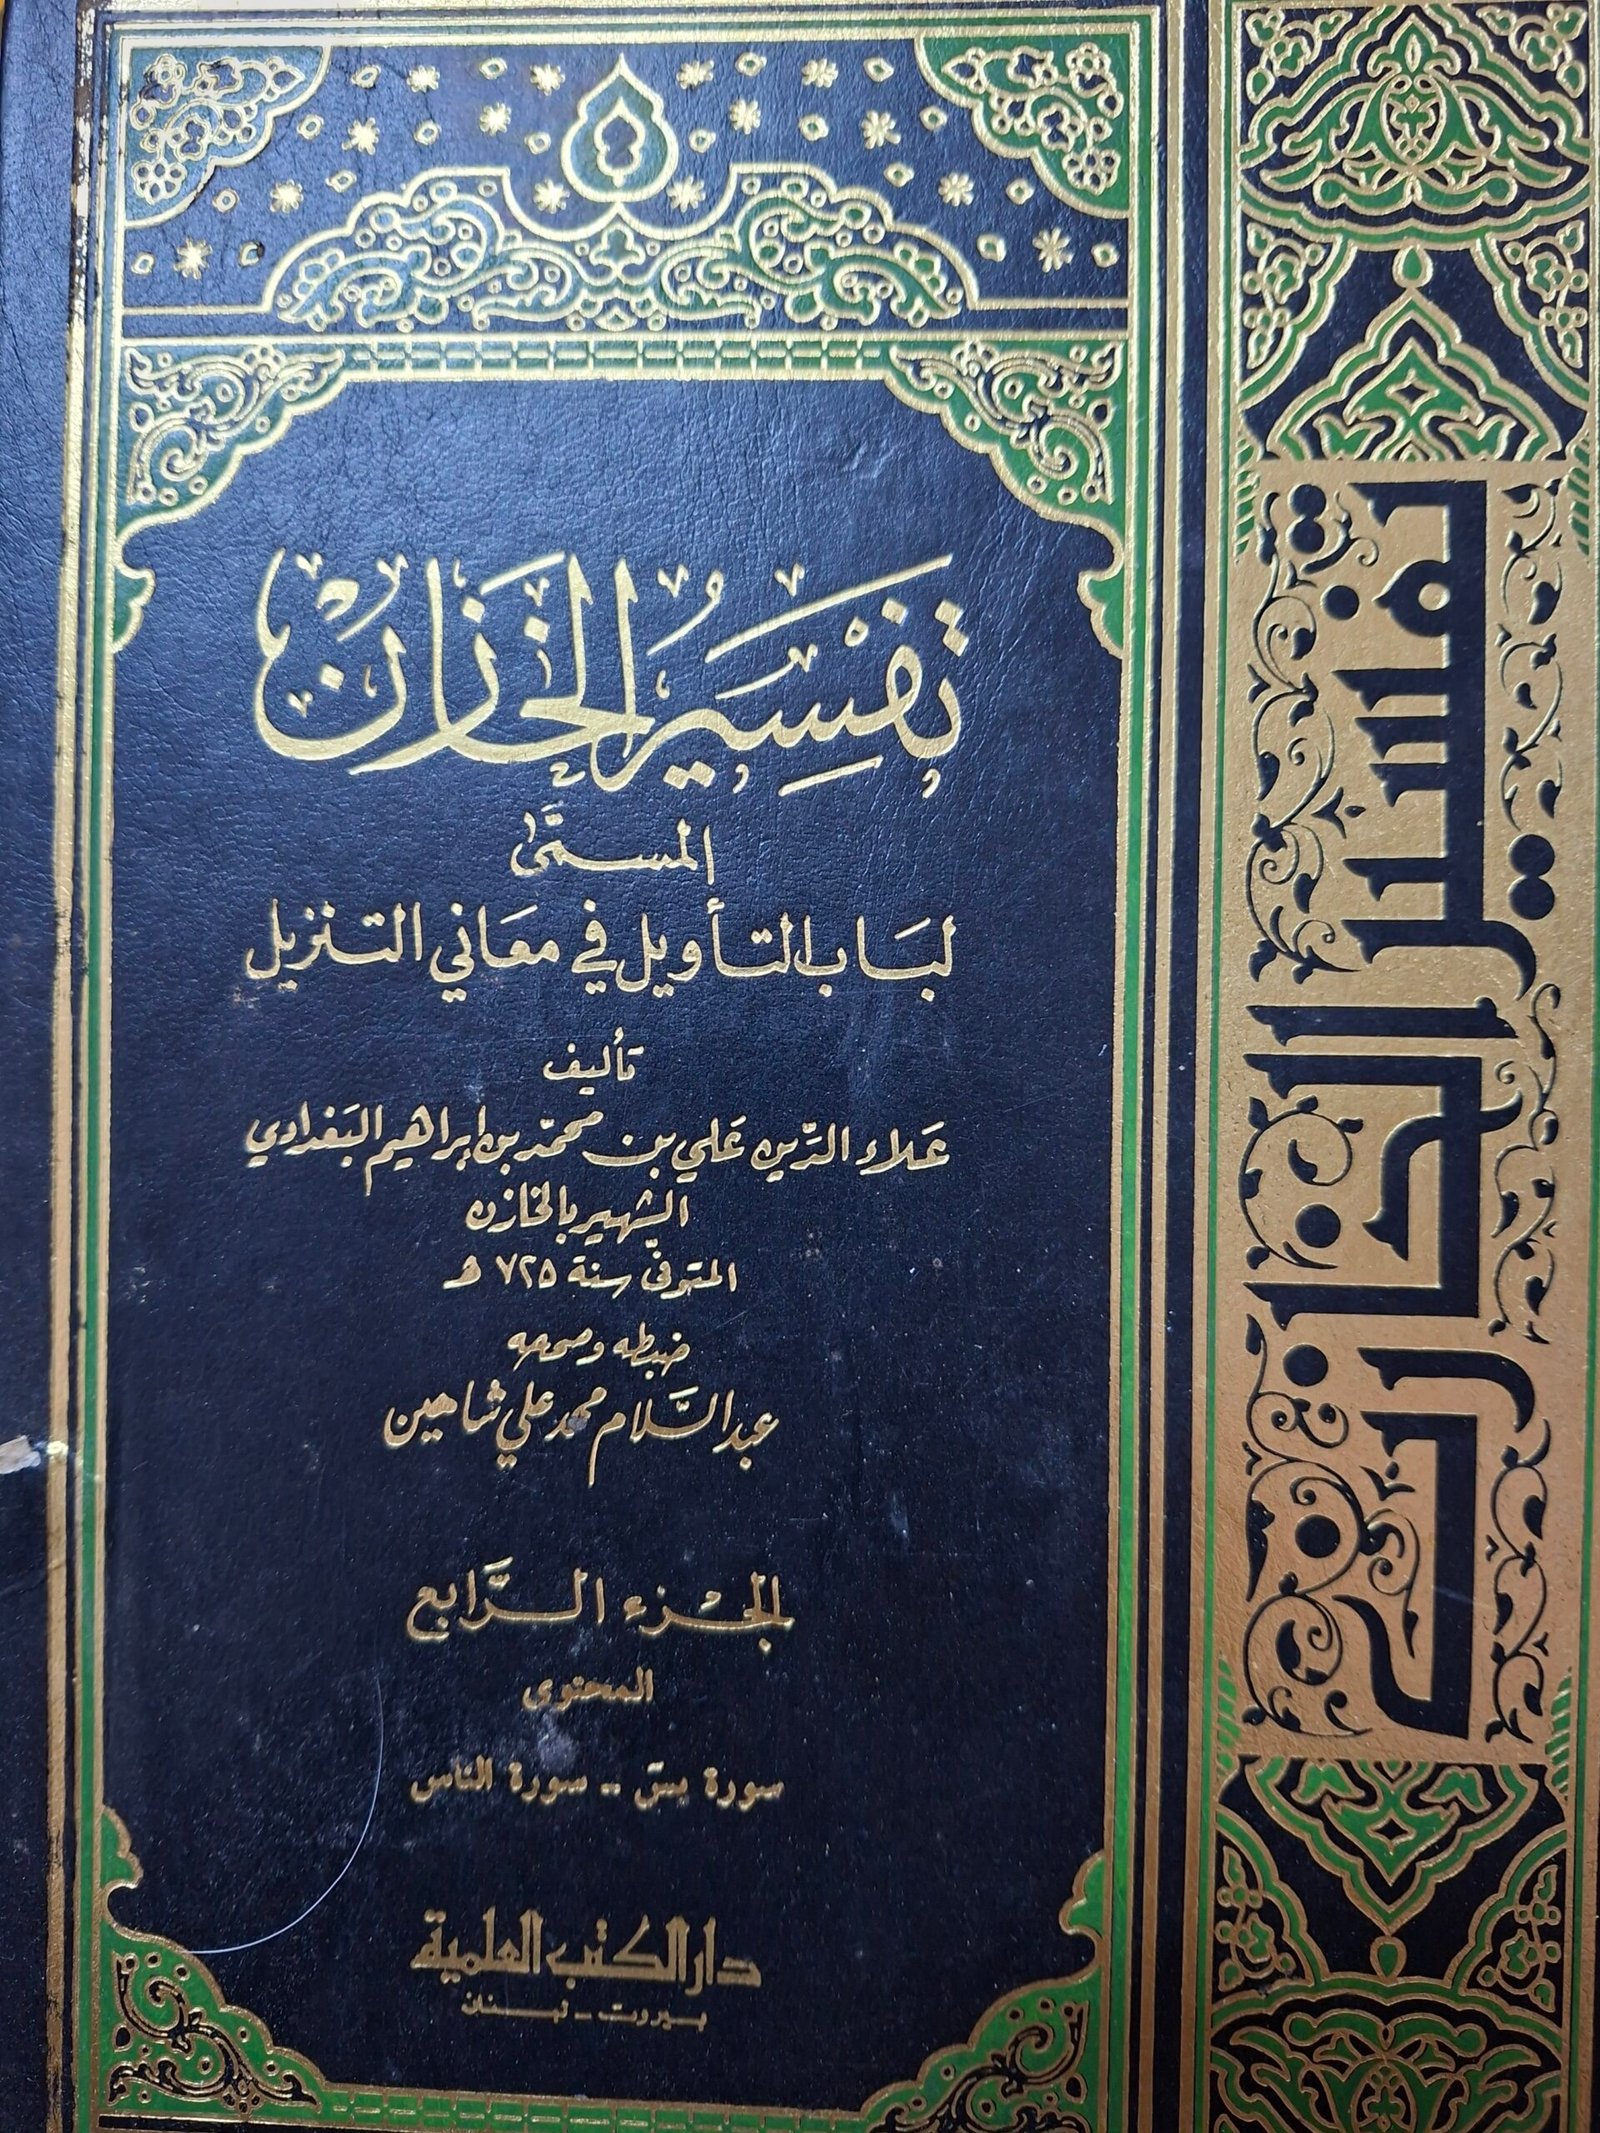 تَفْسِيرُ الخَازِنْ
المسمَّى
لبَاب التأويل في معَاني التنزيل
تأليف
عَلاء الدِّين عَلي بن محمّد بن إبراهيم البَغدادي
الشهير بالخازن
المتوفّى سنة ٧٢٥ هـ
ضبطه وصححه
عبد السَّلام محمد علي شاهين
الجُزء الرَّابع
المحتوى
سورة يسۤ -- سورة الناس
دار الكتب العلمية
بيروت - لبنان
تفسير الخازن
٤